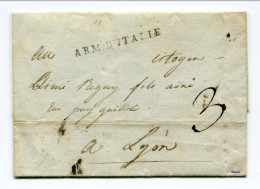 ARM. D'ITALIE
Au citoyen
Aimé Regny fils ainé
3
a Lyon